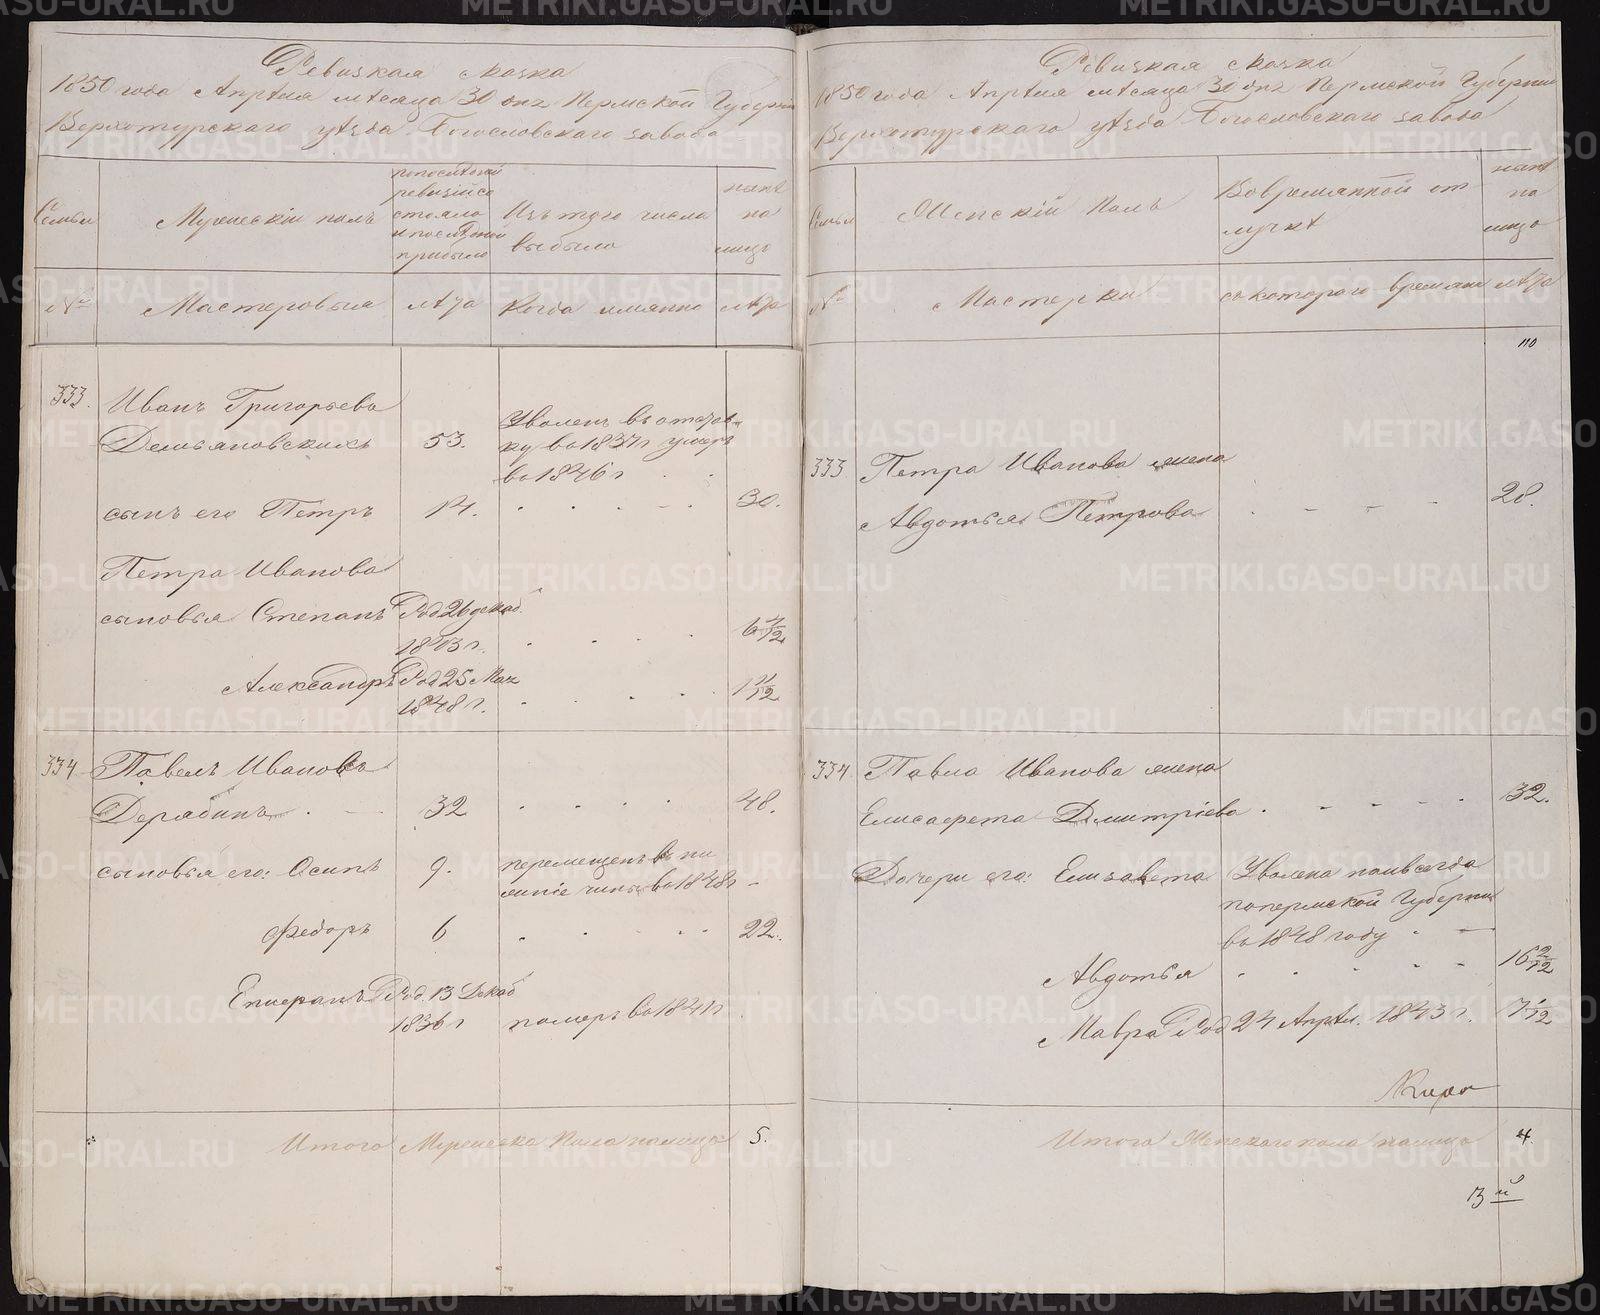 Ревизкая сказка
1850 года Апрѣля мѣсяца 30 дня Пермской Губерніи
Верхотурскаго уѣзда Богословскаго завода
Семьи
Мужескій полъ
по послѣдней
ревизіи со
стояло
и послѣ оной
прибыло
Изъ того числа
выбыло
нынѣ
на
лицо
№
Мастеровыя
лѣта
Когда имянно
лѣта
333.
Иванъ Григорьевъ
Демьяновскихъ
53.
Уволенъ въ отстав
ку въ 1837 г умеръ
въ 1846 г
сынъ его Петръ
14.
30.
Петра Иванова
сыновья Степанъ
Род 26 декаб.
1843 г.
6 4/12
Александръ
Род 25 Мая
1848 г.
1 11/12
334
Павелъ Ивановъ
Дерябинъ
32
48.
сыновья его: Осипъ
9.
перемещенъ въ ни
жніе чины въ 1848 г
Федоръ
6
22.
Епифанъ
Род. 13 Декаб
1836 г
померъ въ 1841 г
Итого Мужеска Пола налицо
5.
Ревизкая сказка
1850 года Апрѣля мѣсяца 30 дня Пермской Губерніи
Верхотурскаго уѣзда Богословскаго завода
Семьи
Женскій Полъ
Во временной от
лучкѣ
нынѣ
на
лицо
№
Мастерки
съ котораго времяни
лѣта
110
333
Петра Иванова жена
Авдотья Петрова
28.
334
Павла Иванова жена
Елисавета Димитріева
32.
Дочери его: Елизавета
Уволена навсегда
по пермской Губерніи
въ 1848 году
Авдотья
16 2/12
Мавра Род 24 Апрѣл. 1843 г.
7 1/12
Итого Женскаго пола налицо
4.
METRIKI.GASO-URAL.RU